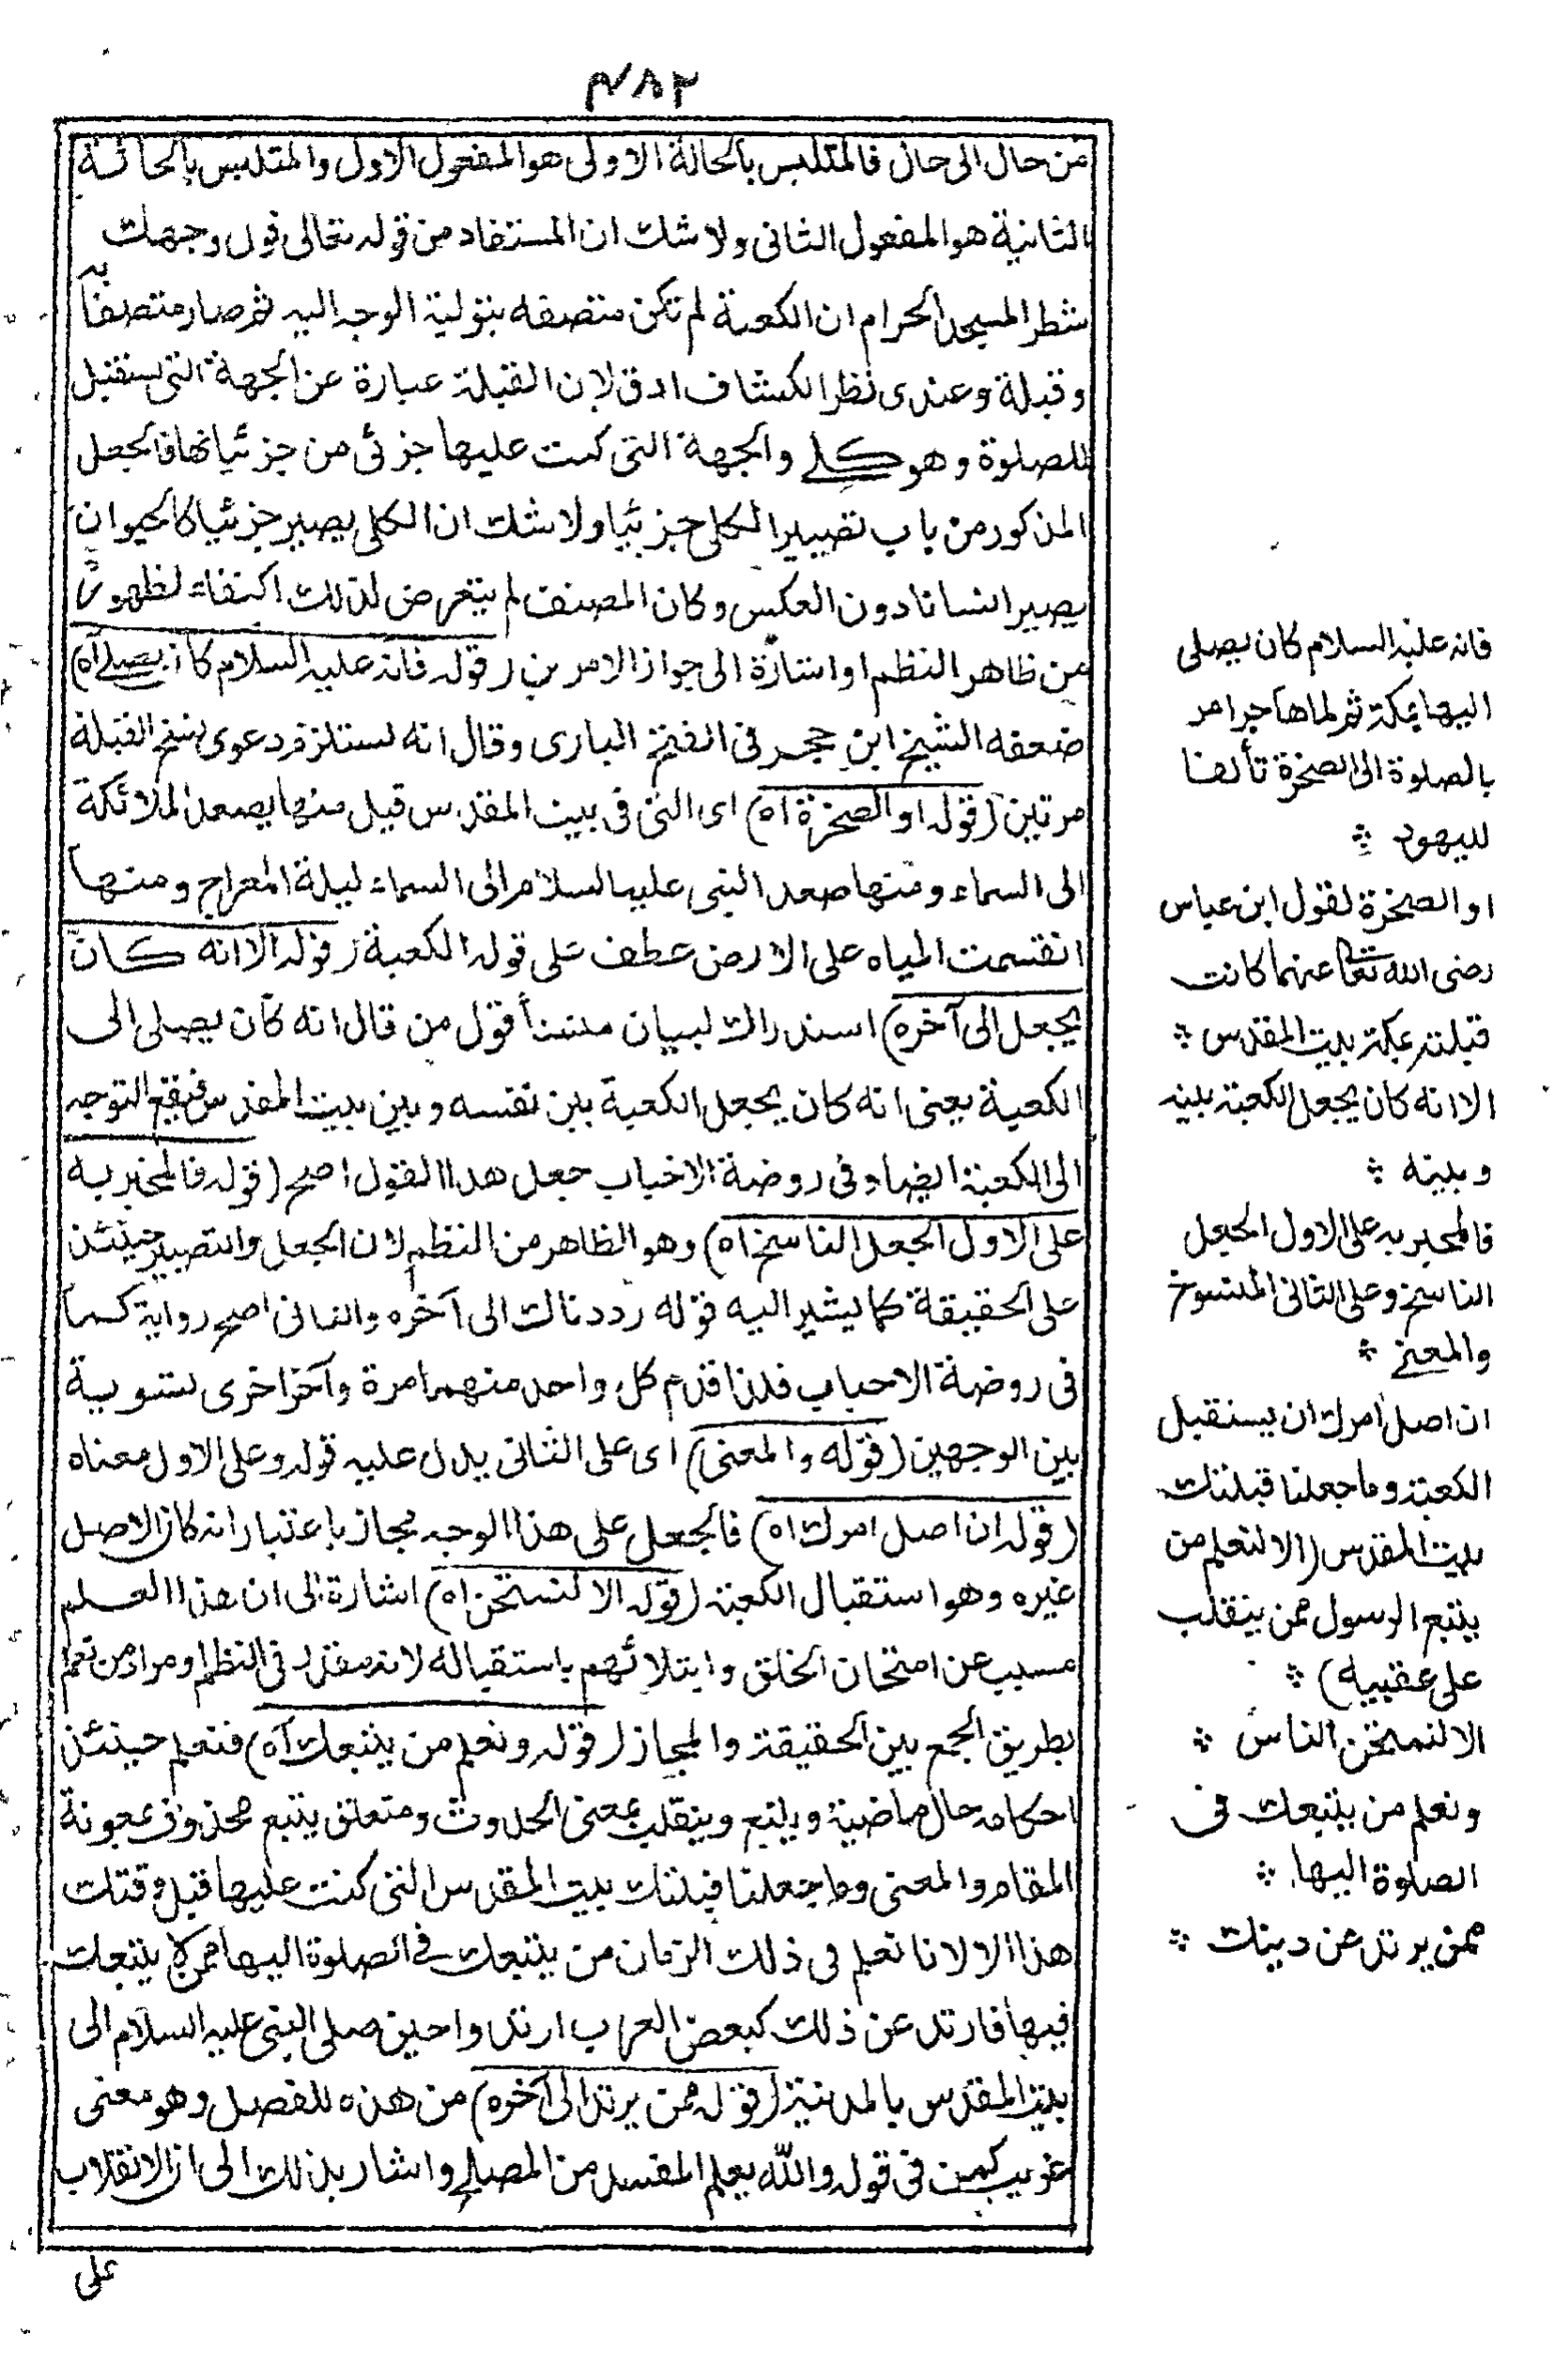 ٤٨٢
من حال الى حال فالمتلبس بالحالة الاولى هو المفعول الاول والمتلبس بالحالة
الثانية هو المفعول الثانى ولا شك ان المستفاد من قوله تعالى فول وجهك
شطر المسجد الحرام ان الكعبة لم تكن متصفه بتولية الوجه اليه ثم صار متصفا به
وقبلة وعندى نظر الكشاف ادق لان القبلة عبارة عن الجهة التى يستقبل
للصلوة وهو كلى والجهة التى كنت عليها جزئى من جزئياتها فالجعل
المذكور من باب تصيير الكلى جزئيا ولا شك ان الكلى يصير جزئيا كالحيوان
يصير انسانا دون العكس وكان المصنف لم يتعرض لذلك اكتفاء لظهوره
من ظاهر النظم او اشارة الى جواز الامرين (قوله فانه عليه السلام كان يصلى آه)
ضعفه الشيخ ابن حجر فى الفتح البارى وقال انه يستلزم دعوى نسخ القبلة
مرتين (قوله او الصخرة اه) اى التى فى بيت المقدس قيل منها يصعد الملائكة
الى السماء ومنها صعد النبى عليه السلام الى السماء ليلة المعراج ومنها
انقسمت المياه على الارض عطف على قوله الكعبة (قوله الا انه كان
يجعل الى آخره) استدراك لبيان منشأ قول من قال انه كان يصلى الى
الكعبة يعنى انه كان يجعل الكعبة بين نفسه وبين بيت المقدس فيقع التوجه
الى الكعبة ايضا وفى روضة الاحباب جعل هذا القول اصح (قوله فالمخبر به
على الاول الجعل الناسخ اه) وهو الظاهر من النظم لان الجعل والتصيير حينئذ
على الحقيقة كما يشير اليه قوله رددناك الى آخره والثانى اصح رواية كما
فى روضة الاحباب فلذا قدم كل واحد منهما مرة وآخر اخرى تسوية
بين الوجهين (قوله والمعنى) اى على الثانى يدل عليه قوله وعلى الاول معناه
(قوله ان اصل امرك اه) فالجعل على هذا الوجه مجاز باعتبار انه كان الاصل
غيره وهو استقبال الكعبة (قوله الا لنمتحن اه) اشارة الى ان هذا العلم
مسبب عن امتحان الخلق وابتلائهم باستقباله لانه مقدر فى النظم او مراد من نعلم
بطريق الجمع بين الحقيقة والمجاز (قوله ونعلم من يتبعك آه) فنعلم حينئذ
احكامه حال ماضية ويتبع وينقلب بمعنى الحدوث ومتعلق يتبع محذوف بمعونة
المقام والمعنى وما جعلنا قبلتك بيت المقدس التى كنت عليها قبل وقتك
هذا الا لانا نعلم فى ذلك الزمان من يتبعك فى الصلوة اليها ممن لا يتبعك
فيها فارتد عن ذلك كبعض العرب ارتدوا حين صلى النبى عليه السلام الى
بيت المقدس بالمدينة (قوله ممن يرتد الى آخره) من هذه للفصل وهو معنى
غريب كمن فى قوله والله يعلم المفسد من المصلح واشار بذلك الى ان الانقلاب
على
فانه عليه السلام كان يصلى
اليها بمكة ثم لما هاجر امر
بالصلوة الى الصخرة تألفا
لليهود
او الصخرة لقول ابن عباس
رضى الله تعا عنهما كانت
قبلته بمكة بيت المقدس
الا انه كان يجعل الكعبة بينه
وبينه
فالمخبر به على الاول الجعل
الناسخ وعلى الثانى المنسوخ
والمعنى
ان اصل امرك ان يستقبل
الكعبة وما جعلنا قبلتك
بيت المقدس (الا لنعلم من
يتبع الرسول ممن ينقلب
على عقبيه)
الا لنمتحن الناس
ونعلم من يتبعك فى
الصلوة اليها
ممن يرتد عن دينك